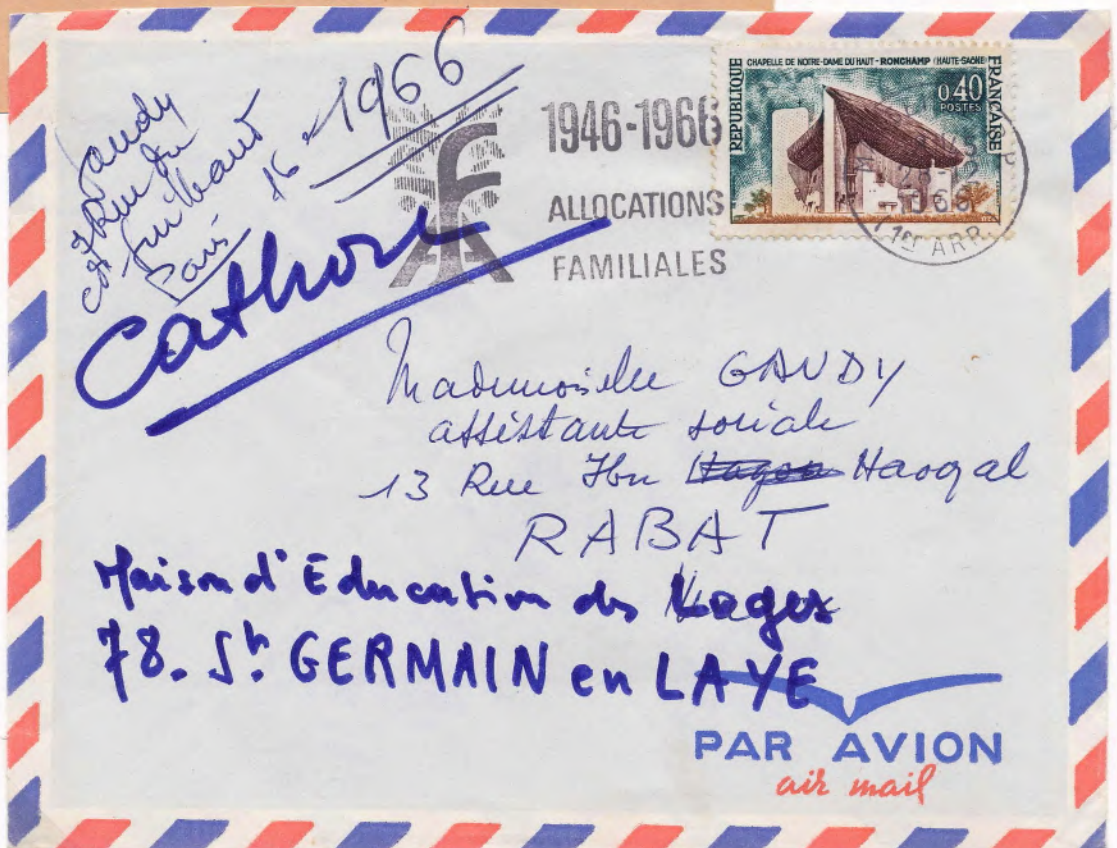 Gaudy
7 Rue du
Paris 16
1966
1946-1966
ALLOCATIONS
FAMILIALES
RÉPUBLIQUE FRANÇAISE
CHAPELLE DE NOTRE-DAME DU HAUT - RONCHAMP (HAUTE-SAÔNE)
0,40
POSTES
1966
1er ARR.
Mademoiselle GAUDY
assistante sociale
13 Rue Ibn Haogal
RABAT
Maison d'Education des Loges
78. St. GERMAIN en LAYE
PAR AVION
air mail